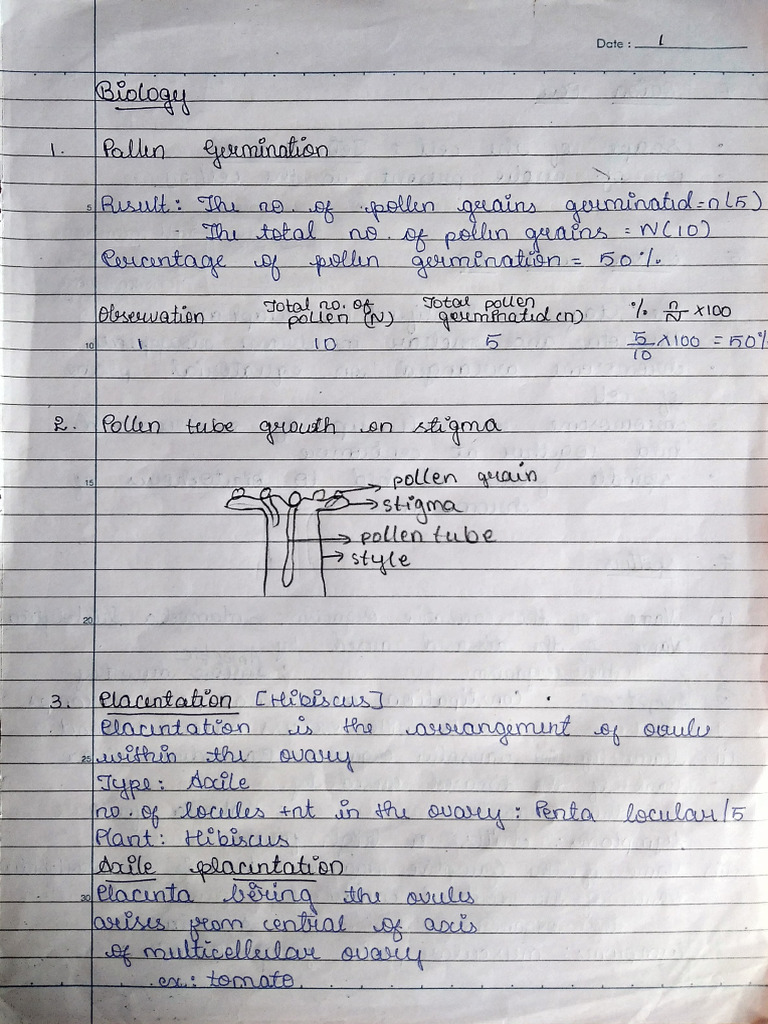 Date : 1
Biology
1. Pollen Germination
5 Result: The no. of pollen grains germinated = n(5)
The total no. of pollen grains = N(10)
Percentage of pollen germination = 50%
Observation Total no. of pollen (N) Total pollen germinated (n) % n/N ×100
10 1 10 5 5/10 ×100 = 50%
2. Pollen tube growth on stigma
15 pollen grain
stigma
pollen tube
style
20
3. Placentation [Hibiscus]
Placentation is the arrangement of ovule
25 within the ovary
Type: Axile
no. of locules +nt in the ovary : Penta locular/5
Plant: Hibiscus
Axile placentation
30 Placenta bering the ovules
arises from central of axis
of multicellular ovary
ex: tomato